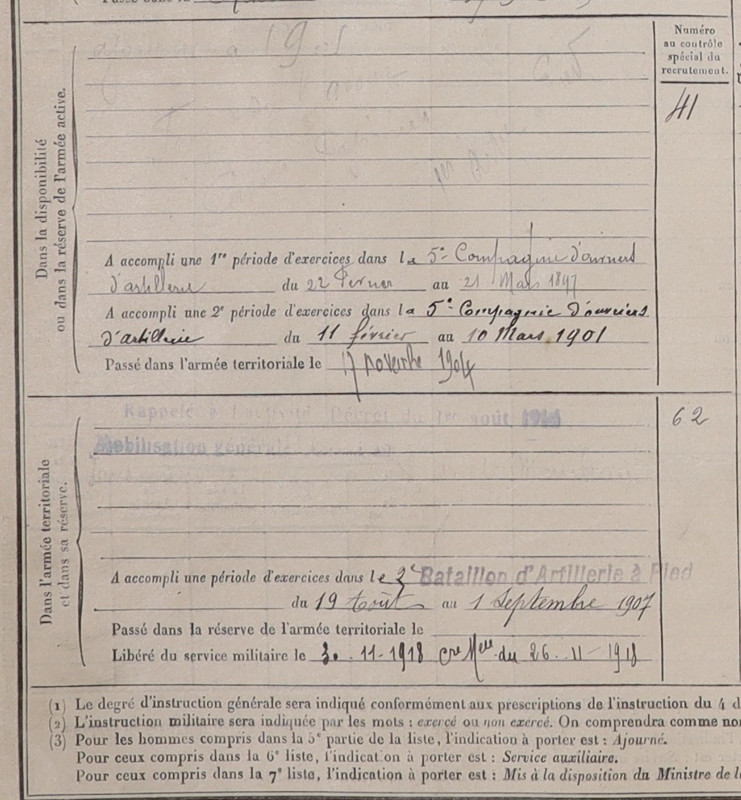 Numéro
au contrôle
spécial du
recrutement.
Dans la disponibilité
ou dans la réserve de l'armée active.
41
A accompli une 1re période d'exercices dans la 5e Compagnie d'ouvriers
d'artillerie du 22 février au 21 Mars 1897
A accompli une 2e période d'exercices dans la 5e Compagnie d'ouvriers
d'artillerie du 11 février au 10 Mars 1901
Passé dans l'armée territoriale le 17 novembre 1904
Dans l'armée territoriale
et dans sa réserve.
62
Rappelé à l'activité Décret du 1er août 1914
Mobilisation générale
A accompli une période d'exercices dans le 2e Bataillon d'Artillerie à Pied
du 19 Août au 1 Septembre 1907
Passé dans la réserve de l'armée territoriale le
Libéré du service militaire le 30.11-1918 cre Melle du 26.11-1918
(1) Le degré d'instruction générale sera indiqué conformément aux prescriptions de l'instruction du 4 d
(2) L'instruction militaire sera indiquée par les mots : exercé ou non exercé. On comprendra comme no
(3) Pour les hommes compris dans la 5e partie de la liste, l'indication à porter est : Ajourné.
Pour ceux compris dans la 6e liste, l'indication à porter est : Service auxiliaire.
Pour ceux compris dans la 7e liste, l'indication à porter est : Mis à la disposition du Ministre de l